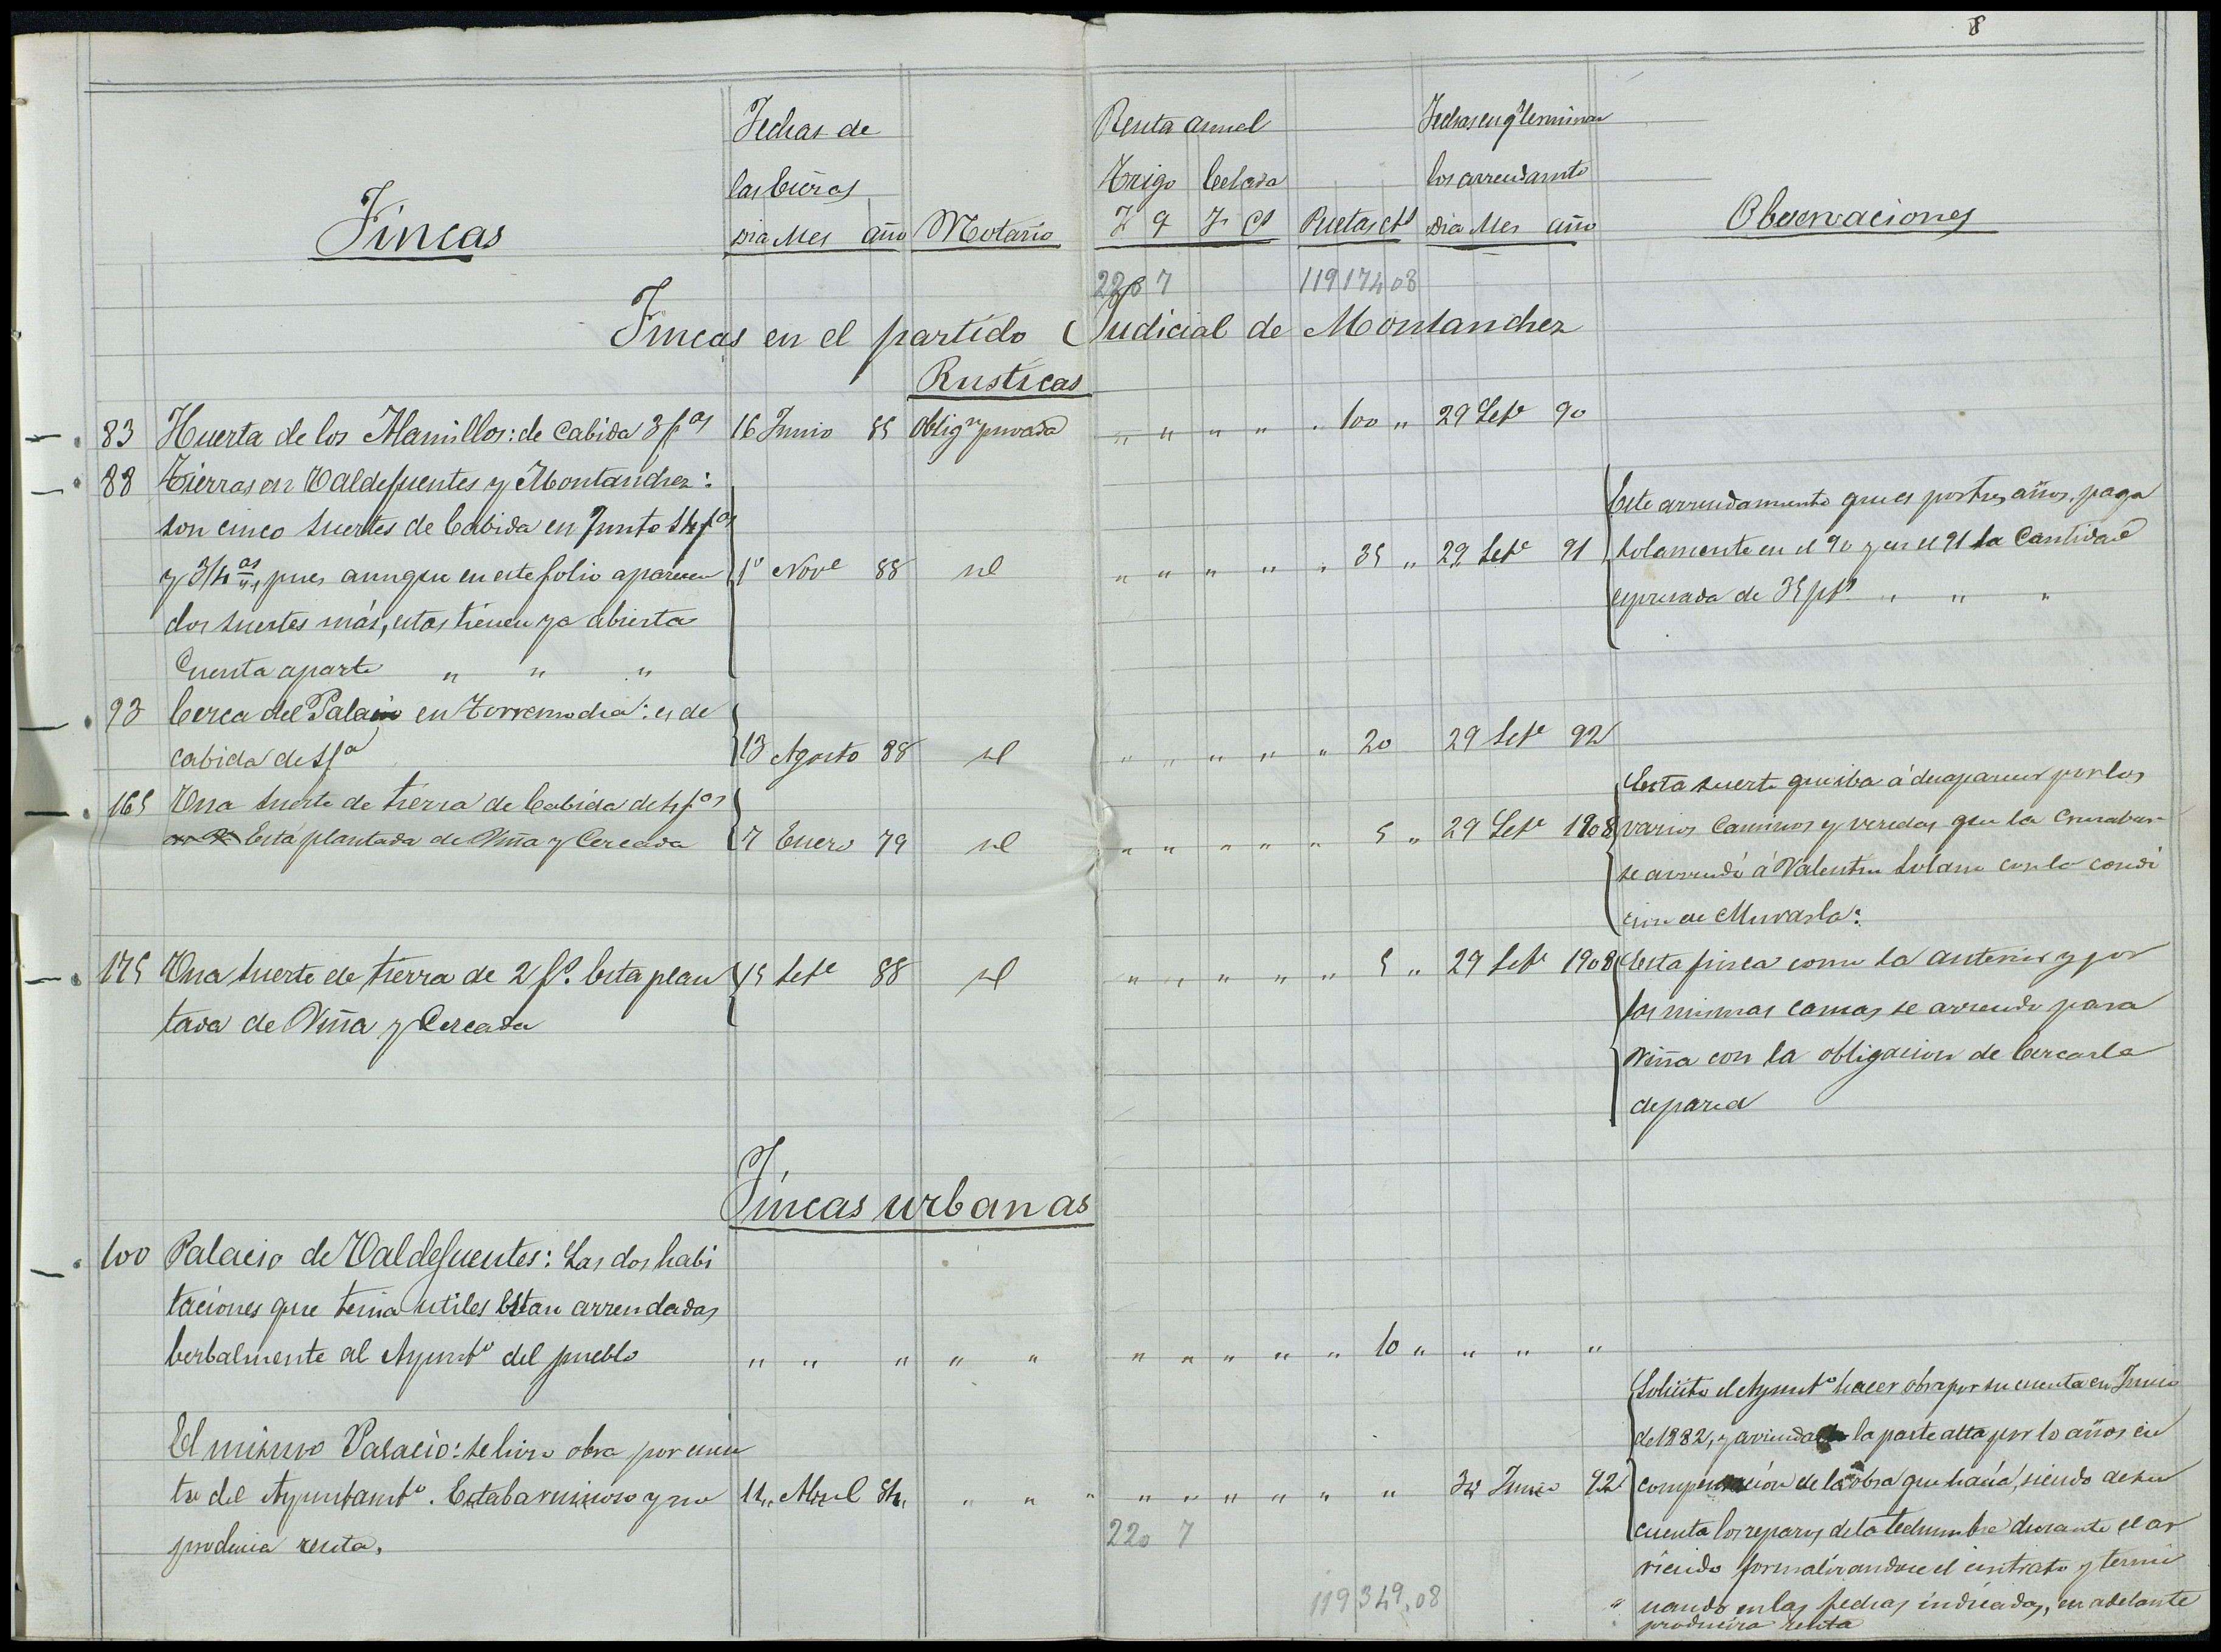 8
Fincas
Fechas de
las
Dia Mes año
Notario
Renta anual
Trigo Cebada
F q F Cs Pesetas Cts
Fechas en q terminan
los arrendamto
Dia Mes año
Observaciones
220 7 119174 08
Fincas en el partido Judicial de Montanchez
Rusticas
83 Huerta de los Alamillos: de Cabida 3 fas 16 Junio 85 Oblign privada " " " " " 100 " 29 Sete 90
88 Tierras en Valdefuentes y Montanchez:
son cinco suertes de Cabida en Junto 14 fas
y 3/4 as ", pues aunque en este folio aparecen 1º Nove 88 id " " " " " 35 " 29 Sete 91
dos suertes más, estas tienen ya abierta
Cuenta aparte " " "
Este arrendamiento que es por tres años, paga
solamente en el 90 y en el 91 la Cantidad
espresada de 35 pts " " "
93 Cerca del Palacio en Torremocha: es de
cabida de 1 fa 13 Agosto 88 id " " " " " 20 29 Sete 92
165 Una suerte de tierra de Cabida de 4 fas
Está plantada de Viña y Cercada 7 Enero 79 id " " " " " 5 " 29 Sete 1908
Esta suerte que iba á desaparecer por los
varios Caminos y veredas que la Cruzaban
se arrendó á Valentin Solano con la condi
cion de Murarla:
175 Una suerte de tierra de 2 fs. Esta plan 15 Sete 88 id " " " " " 5 " 29 Sete 1908
tada de Viña y Cercada
Esta finca como la anterior y por
las mismas causas se arrendo para
Viña con la obligacion de Cercarla
de pared
Fincas urbanas
100 Palacio de Valdefuentes: Las dos habi
taciones que tenia utiles Estan arrendadas
berbalmente al Ayuntº del pueblo " " " " " " " " " " 10 " " " "
El mismo Palacio: se hizo obra por cuen
ta del Ayuntamtº. Estaba ruinoso y no 14 " Abril 84 " " " " " " " " " " " Junio 92
producia renta.
Solicito el Ayuntº hacer obra por su cuenta en Junio
de 1882, y arrienda la parte alta por 10 años en
compensación de la obra que hacia, siendo de su
cuenta los reparos de la techumbre durante el ar
riendo formalizandose el contrato y termi
" nando en las fechas indicadas, en adelante
producira renta
220 7
119349.08